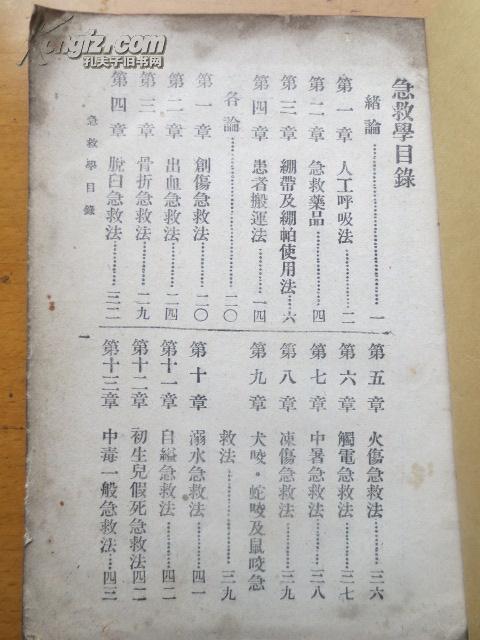 Kongfz.com
孔夫子旧书网
急救學目錄
緒論…………一
第一章 人工呼吸法…………二
第二章 急救藥品…………四
第三章 繃帶及繃帕使用法…六
第四章 患者搬運法…………一四
各論…………二〇
第一章 創傷急救法…………二〇
第二章 出血急救法…………二四
第三章 骨折急救法…………二九
第四章 脫臼急救法…………三二
急救學目錄
一
第五章 火傷急救法…………三六
第六章 觸電急救法…………三七
第七章 中暑急救法…………三八
第八章 凍傷急救法…………三九
第九章 犬咬·蛇咬及鼠咬急
救法…………三九
第十章 溺水急救法…………四一
第十一章 自縊急救法…………四二
第十二章 初生兒假死急救法四二
第十三章 中毒一般急救法…四三